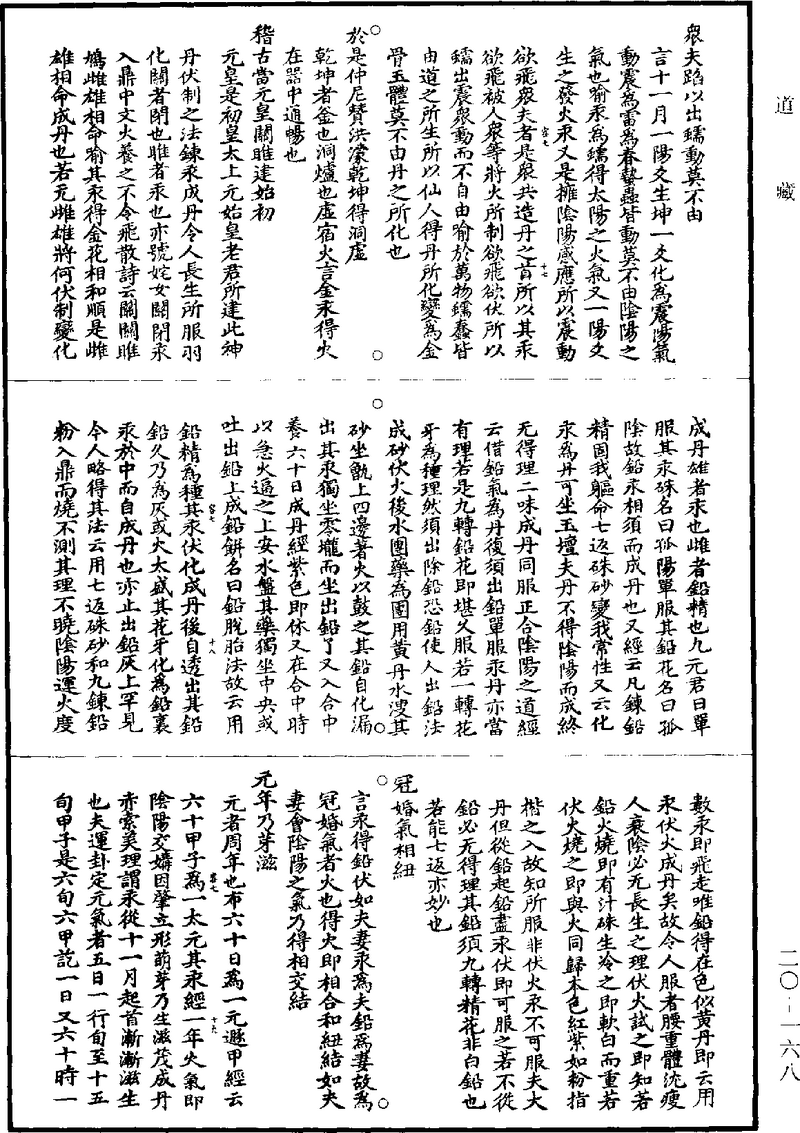 道藏
眾夫蹈以出蠕動莫不由
言十一月一陽爻生坤一爻化為震陽氣
動震為雷為春蟄蟲皆動莫不由陰陽之
氣也喻汞為蠕得太陽之火氣又一陽爻
生之發火汞又是擁陰陽感應所以震動
欲飛眾夫者是眾共造丹之首所以其汞
欲飛被人眾等將火所制欲飛欲伏所以
蠕出震眾動而不自由喻於萬物蠕蠢皆
由道之所生所以仙人得丹所化變為金
骨玉體莫不由丹之所化也
於是仲尼贊洪濛乾坤得洞虛
乾坤者釜也洞爐也虛宿火言金汞得火
在器中通暢也
稽古當元皇關雎建始初
元皇是初皇太上元始皇老君所建此神
丹伏制之法鍊汞成丹令人長生所服羽
化關者閉也雎者汞也亦號姹女關閉汞
入鼎中文火養之不令飛散詩云關關雎
鳩雌雄相命喻其汞得金花相和順是雌
雄相命成丹也若无雌雄將何伏制變化
成丹雄者汞也雌者鉛精也九元君曰單
服其汞硃名曰孤陽單服其鉛花名曰孤
陰故鉛汞相須而成丹也又經云凡鍊鉛
精固我軀命七返硃砂變我常性又云化
汞為丹可坐玉壇夫丹不得陰陽而成終
无得理二味成丹同服正合陰陽之道經
云借鉛氣為丹復須出鉛單服汞丹亦當
有理若是九轉鉛花即堪久服若一轉花
牙為種理然須出除鉛恐鉛使人出鉛法
成砂伏火後水團藥為團用黃丹水溲其
砂坐甑上四邊著火以鼓之其鉛自化漏
出其汞獨坐零壠而坐出鉛了又入合中
養六十日成丹經紫色即休又在合中時
以急火逼之上安水盤其藥獨坐中央或
吐出鉛上成鉛餅名曰鉛脫胎法故云用
鉛精為種其汞伏化成丹後自透出其鉛
鉛久乃為灰或火太盛其花牙化為鉛裹
汞於中而自成丹也亦止出鉛灰上罕見
今人略得其法云用七返硃砂和九鍊鉛
粉入鼎而燒不測其理不曉陰陽運火度
數汞即飛走唯鉛得在色似黃丹即云用
汞伏火成丹矣故令人服者腰重體沈瘦
人衰陰必无長生之理伏火試之即知若
鉛火燒即有汁硃生冷之即軟白而重若
伏火燒之即與火同歸本色紅紫如粉指
楷之入故知所服非伏火汞不可服夫大
丹但從鉛起鉛盡汞伏即可服之若不從
鉛必无得理其鉛須九轉精花非白鉛也
若能七返亦妙也
冠婚氣相紐
言汞得鉛伏如夫妻汞為夫鉛為妻故為
冠婚氣者火也得火即相合和紐結如夫
妻會陰陽之氣乃得相交結
元年乃芽滋
元者周年也布六十日為一元遯甲經云
六十甲子為一太元其汞經一年火氣即
陰陽交媾因肇立形萌芽乃生滋茂成丹
赤索奚理謂汞從十一月起首漸漸滋生
也夫運卦定元氣者五日一行旬至十五
旬甲子是六旬六甲訖一日又六十時一
二〇-一六八